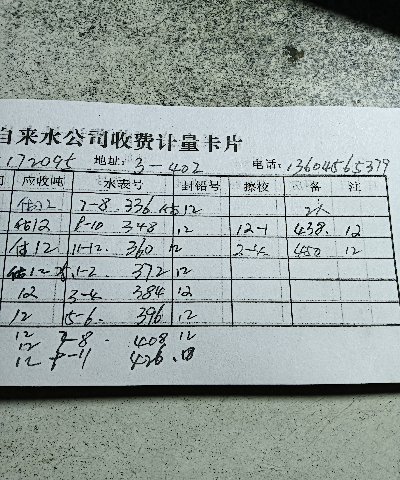 自来水公司收费计量卡片
172095 地址: 3-402 电话: 13604565379
应收吨 水表号 封铅号 擦校 备 注
估12 7-8. 336 估12 2人
估12 9-10 348 12 12-1 438. 12
估12 11-12. 360 12 2-4 450 12
估12 1-2. 372 12
12 3-4 384 12
12 5-6. 396. 12
12 7-8. 408 12
12
12 9-11 426.